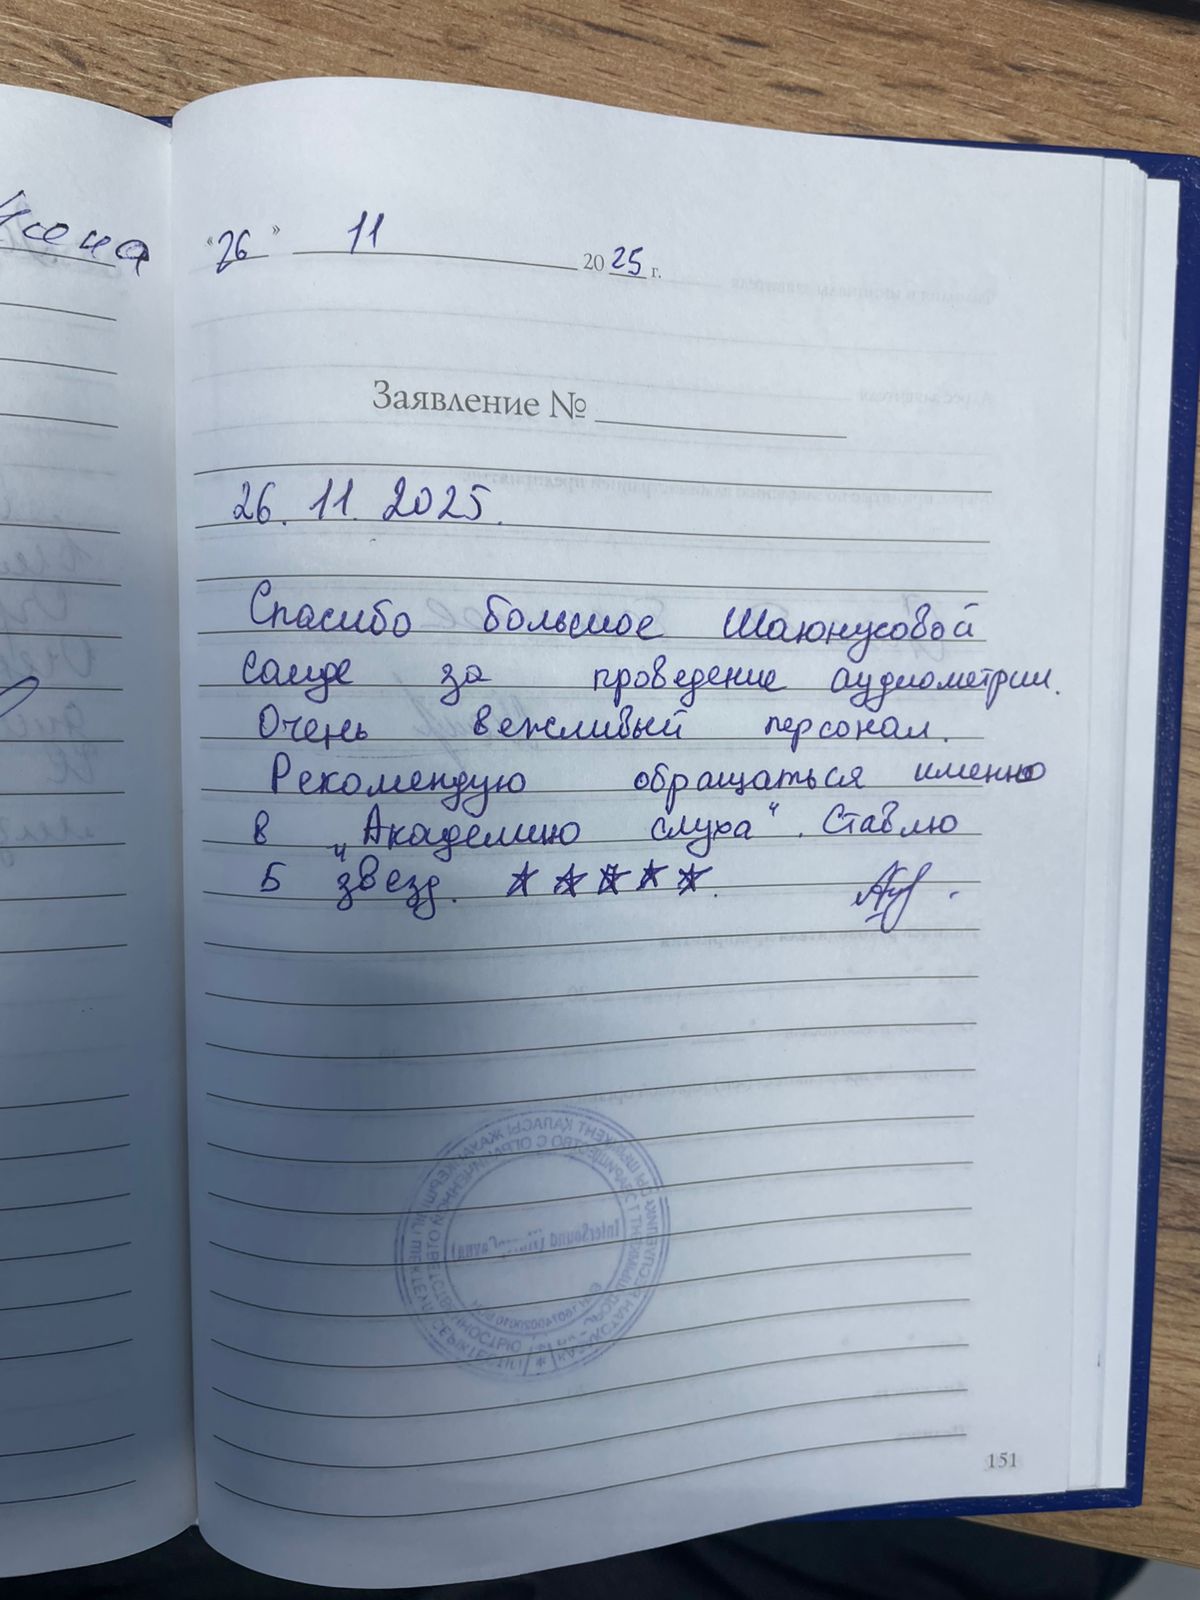 "26" 11 2025 г.
Заявление №
26. 11. 2025.
Спасибо большое Шаюнусовой
Саиде за проведение аудиометрии.
Очень вежливый персонал.
Рекомендую обращаться именно
в „Академию слуха“. Ставлю
5 звезд. ★★★★★.
151